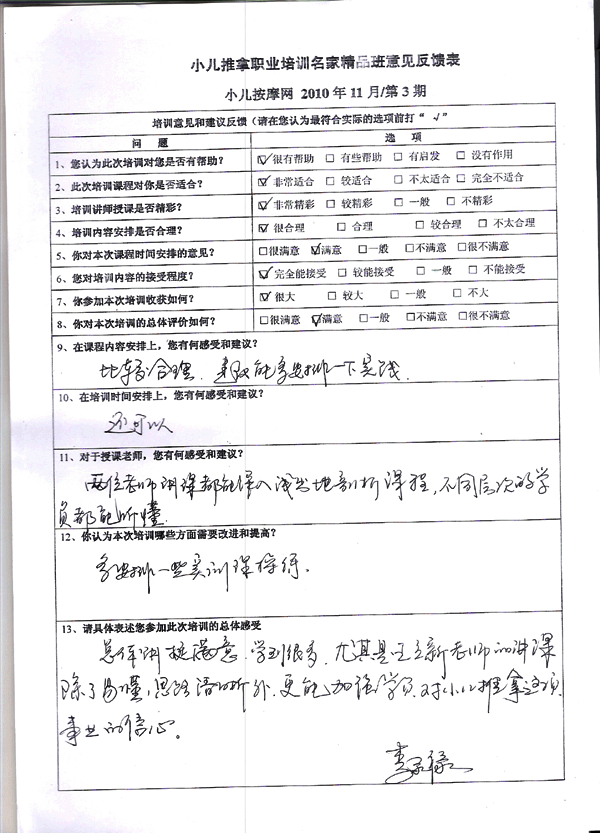 小儿推拿职业培训名家精品班意见反馈表
小儿按摩网 2010年11月/第3期
培训意见和建议反馈（请在您认为最符合实际的选项前打“ √”
问 题 选 项
1、您认为此次培训对您是否有帮助？ ☑很有帮助 □有些帮助 □有启发 □没有作用
2、此次培训课程对你是否适合？ ☑非常适合 □较适合 □不太适合 □完全不适合
3、培训讲师授课是否精彩？ ☑非常精彩 □较精彩 □一般 □不精彩
4、培训内容安排是否合理？ ☑很合理 □合理 □较合理 □不太合理
5、你对本次课程时间安排的意见？ □很满意 ☑满意 □一般 □不满意 □很不满意
6、您对培训内容的接受程度？ ☑完全能接受 □较能接受 □一般 □不能接受
7、你参加本次培训收获如何？ ☑很大 □较大 □一般 □不大
8、你对本次培训的总体评价如何？ □很满意 ☑满意 □一般 □不满意 □很不满意
9、在课程内容安排上，您有何感受和建议？
比较合理，能多安排一下实践.
10、在培训时间安排上，您有何感受和建议？
还可以
11、对于授课老师，您有何感受和建议？
两位老师讲课都能深入浅出地剖析课程，不同层次的学
员都能听懂.
12、你认为本次培训哪些方面需要改进和提高？
多安排一些实训课操练.
13、请具体表述您参加此次培训的总体感受
总体训挺满意，学到很多，尤其是王立新老师的讲课
除了易懂，思路清晰外，更能加强学员对小儿推拿这项
事业的信心。